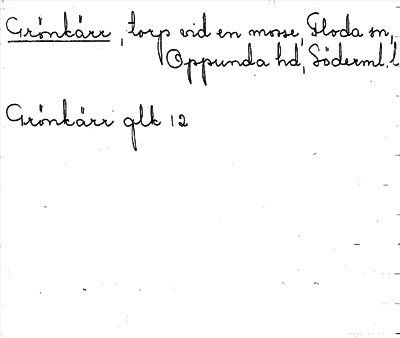 Grönkärr, torp vid en mosse, Floda sn,
Oppunda hd, Söderml. l
Grönkärr glk 12